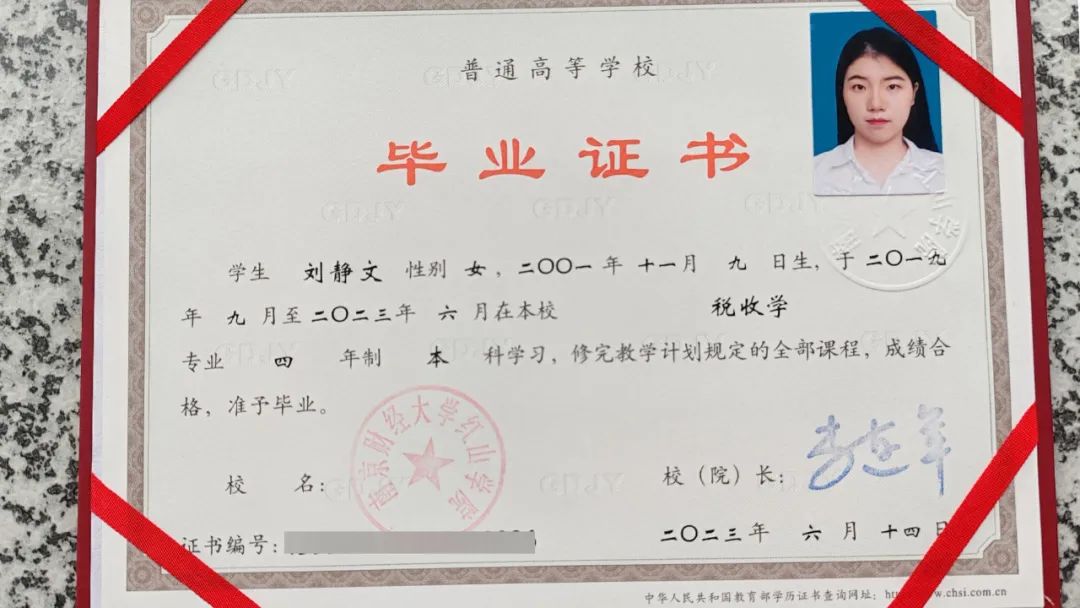 普通高等学校
毕业证书
学生 刘静文 性别 女，二〇〇一年 十一月 九 日生，于 二〇一九
年 九 月至 二〇二三年 六 月在本校 税收学
专业 四 年制 本 科学习，修完教学计划规定的全部课程，成绩合
格，准予毕业。
南京财经大学红山学院
校 名：
校（院）长：
证书编号：
二〇二三年 六 月 十四 日
中华人民共和国教育部学历证书查询网址：http://www.chsi.com.cn